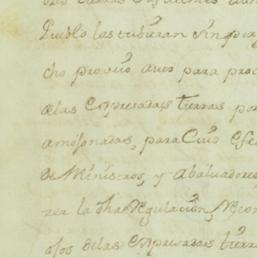 Pueblo las tubieran sin perj
cho proveio auer para proc
de las Expresadas tierras por
amojonadas, para Cuio efe
de Ministros, y Abaluadores
zer la dha Regulacion, Recon
otos de las Expresadas tierr